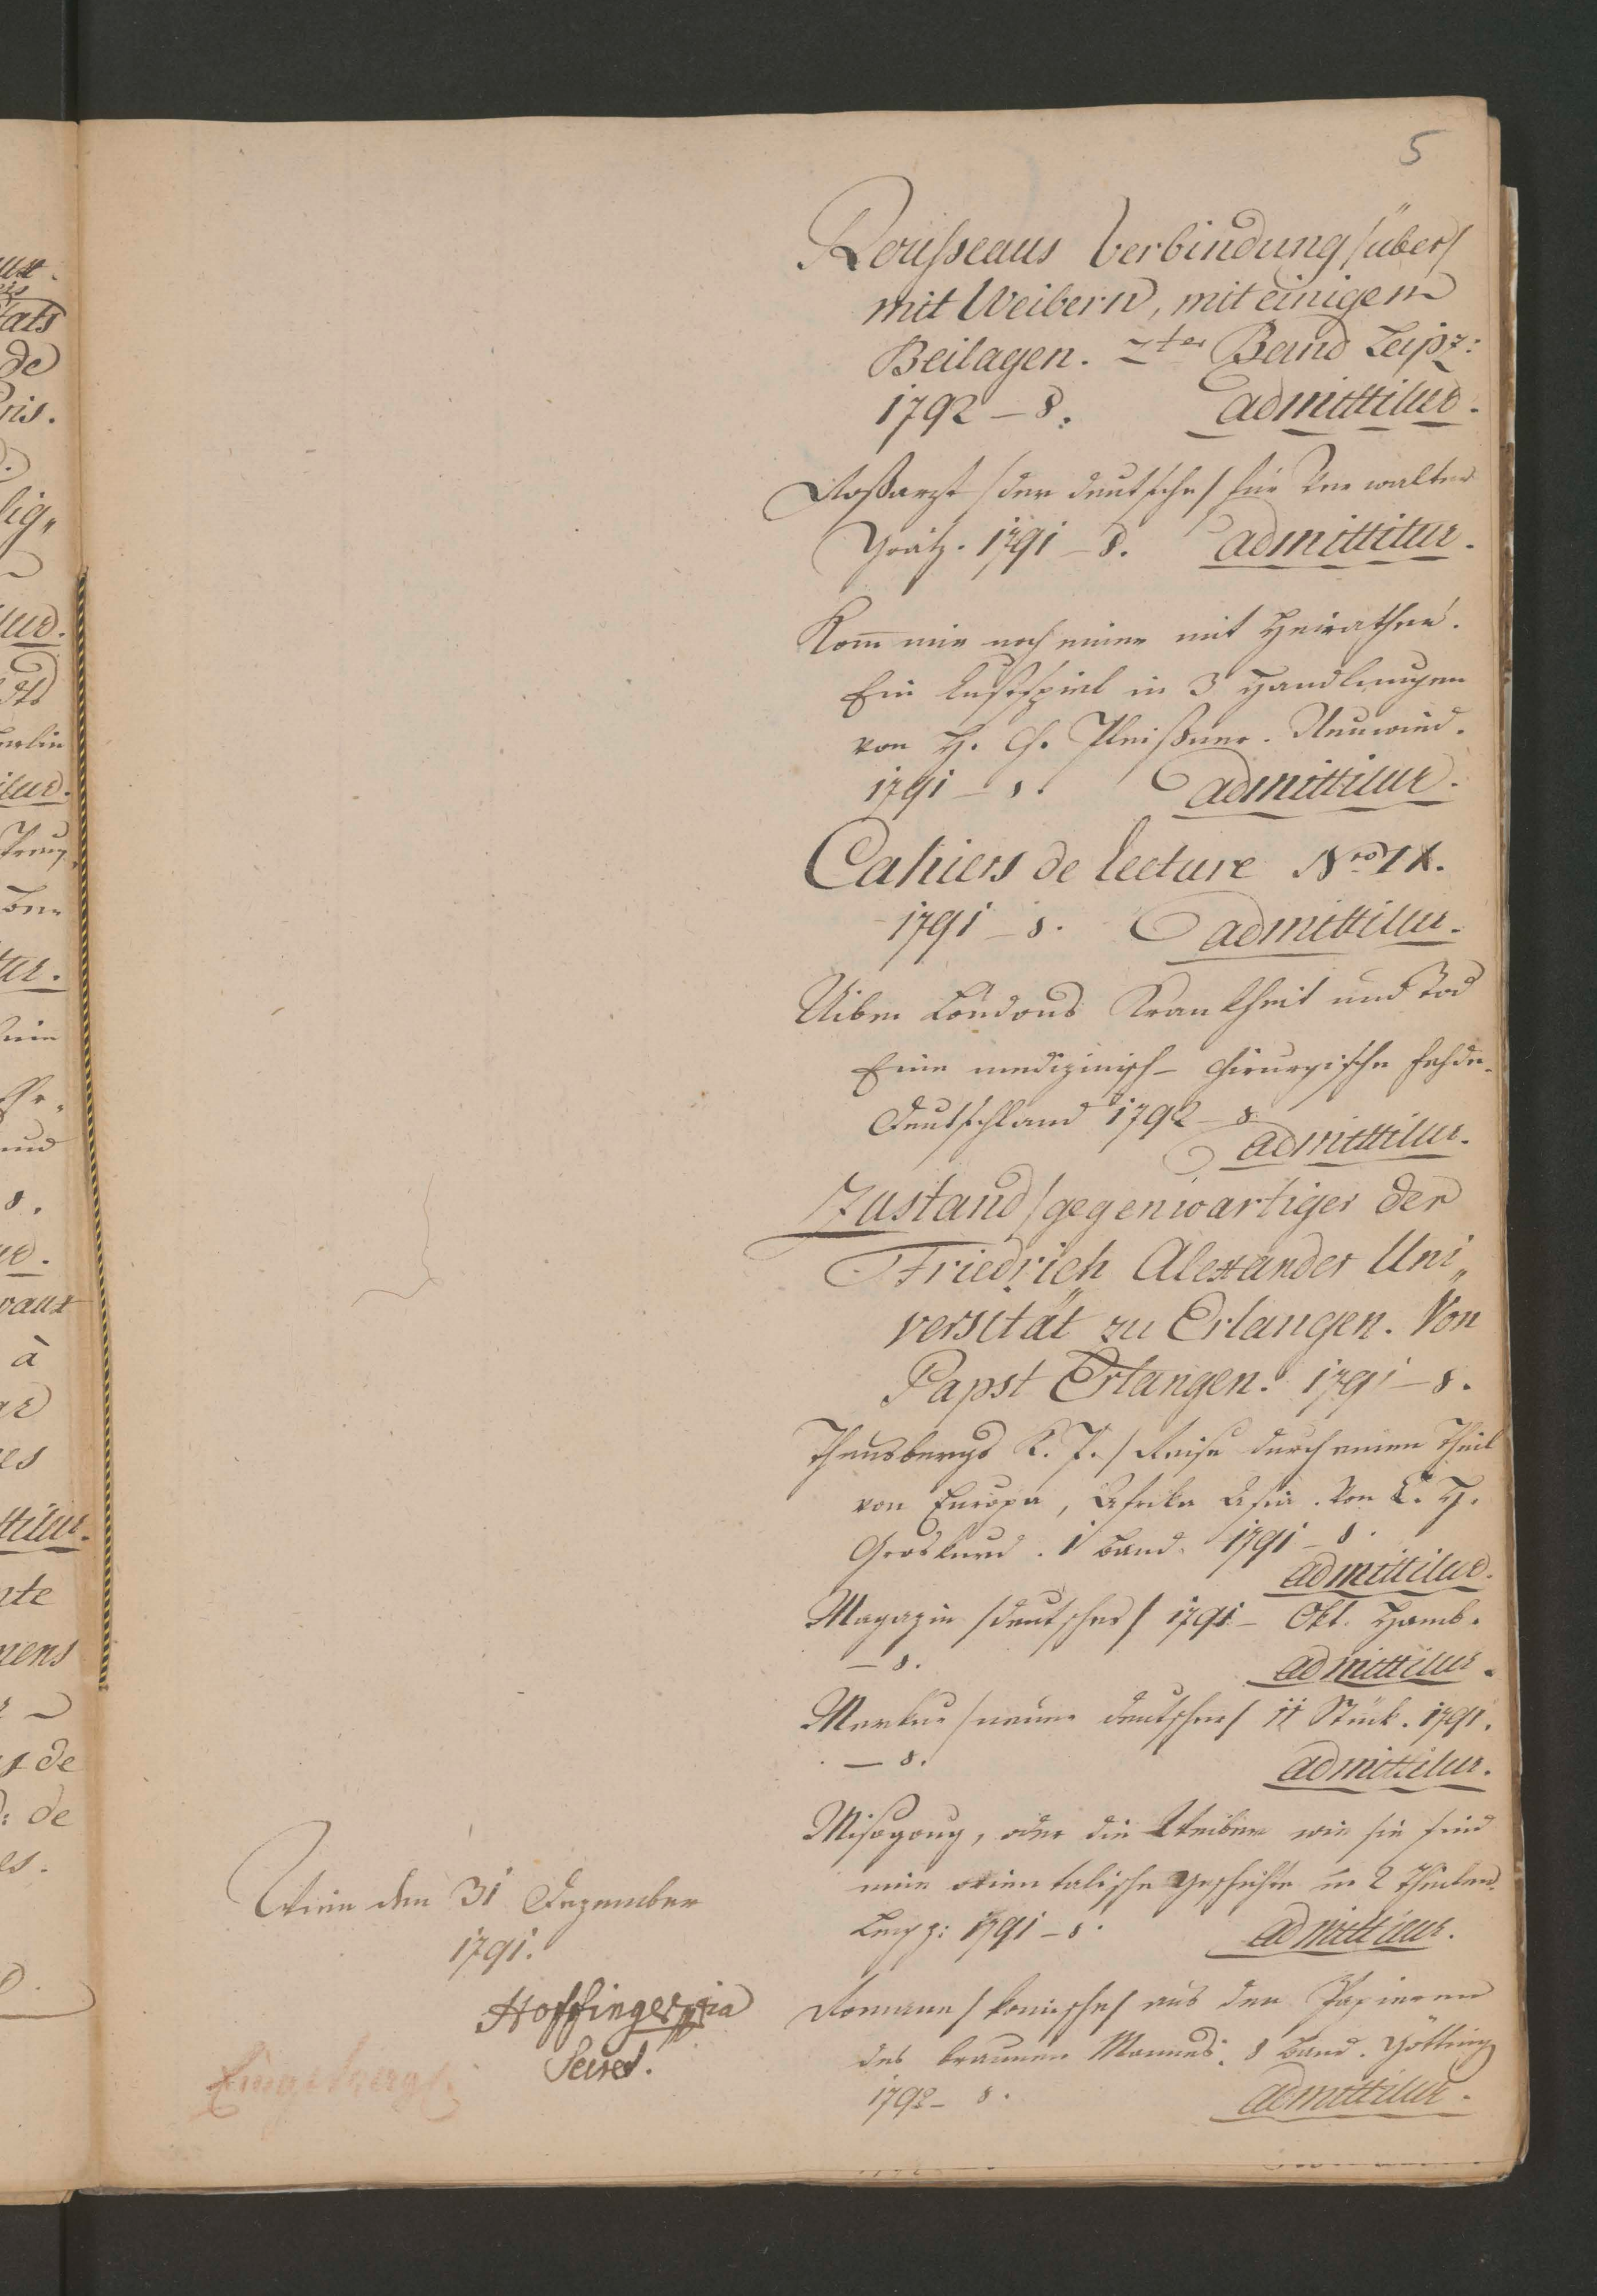 5
Rousseaus Verbindung /über/
mit Weibern, mit einigem
Beilagen. 2ter Band Leipz:
1792 – 8. admittitur.
Roßarzt /der deutsche/ für Verwalter
Grätz. 1791 – 8. admittitur.
Kom̅ mir noch einer mit Heirathen.
Ein Lustspiel in 3 Handlungen
von H. G. Pleißner. Neuwied.
1791 – 8. admittitur.
Cahiers de lecture Nro IX.
1791 – 8. admittitur.
Uiber Loudons Krankheit und Tod
Eine medizinisch-chirurgische Fehde.
Deutschland 1792 – 8.
admittitur.
Zustand /gegenwartiger der
Friedrich Alexander Uni„
versität zu Erlangen. Von
Papst Erlangen. 1791 – 8.
Thunbergs K. P. / Reise durch einen Theil
von Europa, Afrika Asia. Von C. H.
Groskurd. 1 Band. 1791 – 8.
admittitur.
Magazin /deutsches/ 1791 – Okt. Hamb.
– 8. admittitur.
Merkur /neuer deutscher/ 11 Stück. 1791.
– 8. admittitur.
Misogyug, oder die Weiber wie sie sind
eine orientalische Geschichte in 2 Theilen.
Leipz: 1791 – 8. admittitur.
Romane /komische/ aus den Papieren
des braunen Mannes. 8 Band. Götting
1792 – 8. admittitur.
Wien den 31 Dezember
1791.
Hoffinger mpia
Secret.